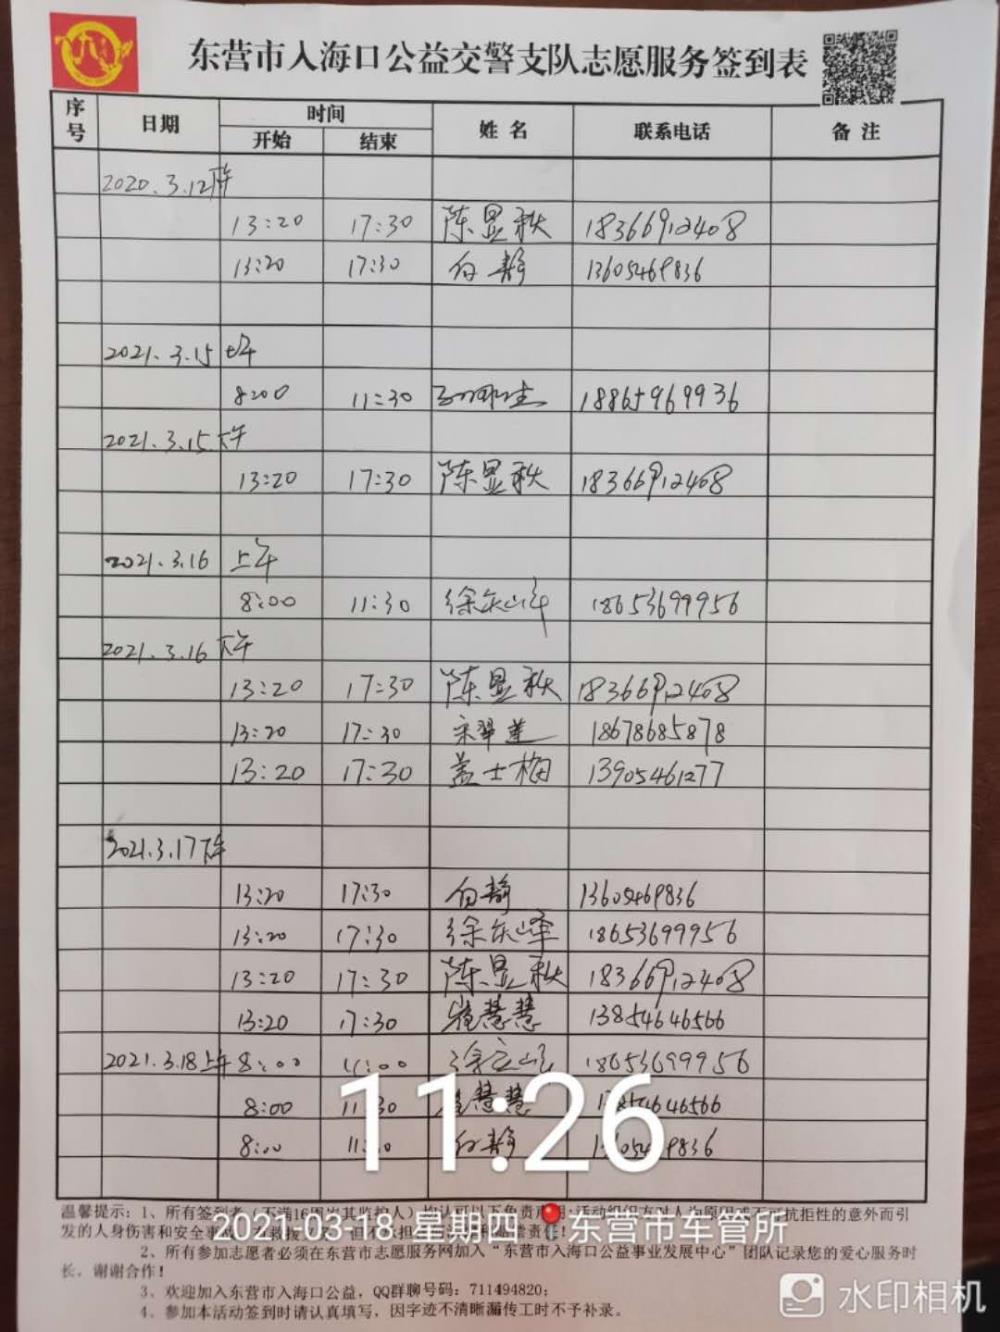 东营市入海口公益交警支队志愿服务签到表
序号 日期 时间 姓名 联系电话 备注
开始 结束
2020.3.12下午
13:20 17:30 陈显秋 18366912408
13:20 17:30 白静 13605469836
2021.3.15 上午
8:00 11:30 18865969936
2021.3.15 下午
13:20 17:30 陈显秋 18366912408
2021.3.16 上午
8:00 11:30 徐庆峰 18653699956
2021.3.16 下午
13:20 17:30 陈显秋 18366912408
13:20 17:30 宋翠莲 18678685878
13:20 17:30 盖士梅 13905461277
2021.3.17下午
13:20 17:30 白静 13605469836
13:20 17:30 徐庆峰 18653699956
13:20 17:30 陈显秋 18366912408
13:20 17:30 崔慧慧 13854646566
2021.3.18上午 8:00 徐庆峰 18653699956
8:00 11:30 崔慧慧 13854646566
8:00 白静 13605469836
11:26
温馨提示：1、所有签到者（不满16周岁其监护人）均认可以下免责声明：活动组织方对人为原因或不可抗拒性的意外而引
发的人身伤害和安全事
2021-03-18 星期四 东营市车管所
2、所有参加志愿者必须在东营市志愿服务网加入“东营市入海口公益事业发展中心”团队记录您的爱心服务时
长，谢谢合作！
3、欢迎加入东营市入海口公益，QQ群聊号码：711494820；
4、参加本活动签到时请认真填写，因字迹不清晰漏传工时不予补录。
水印相机